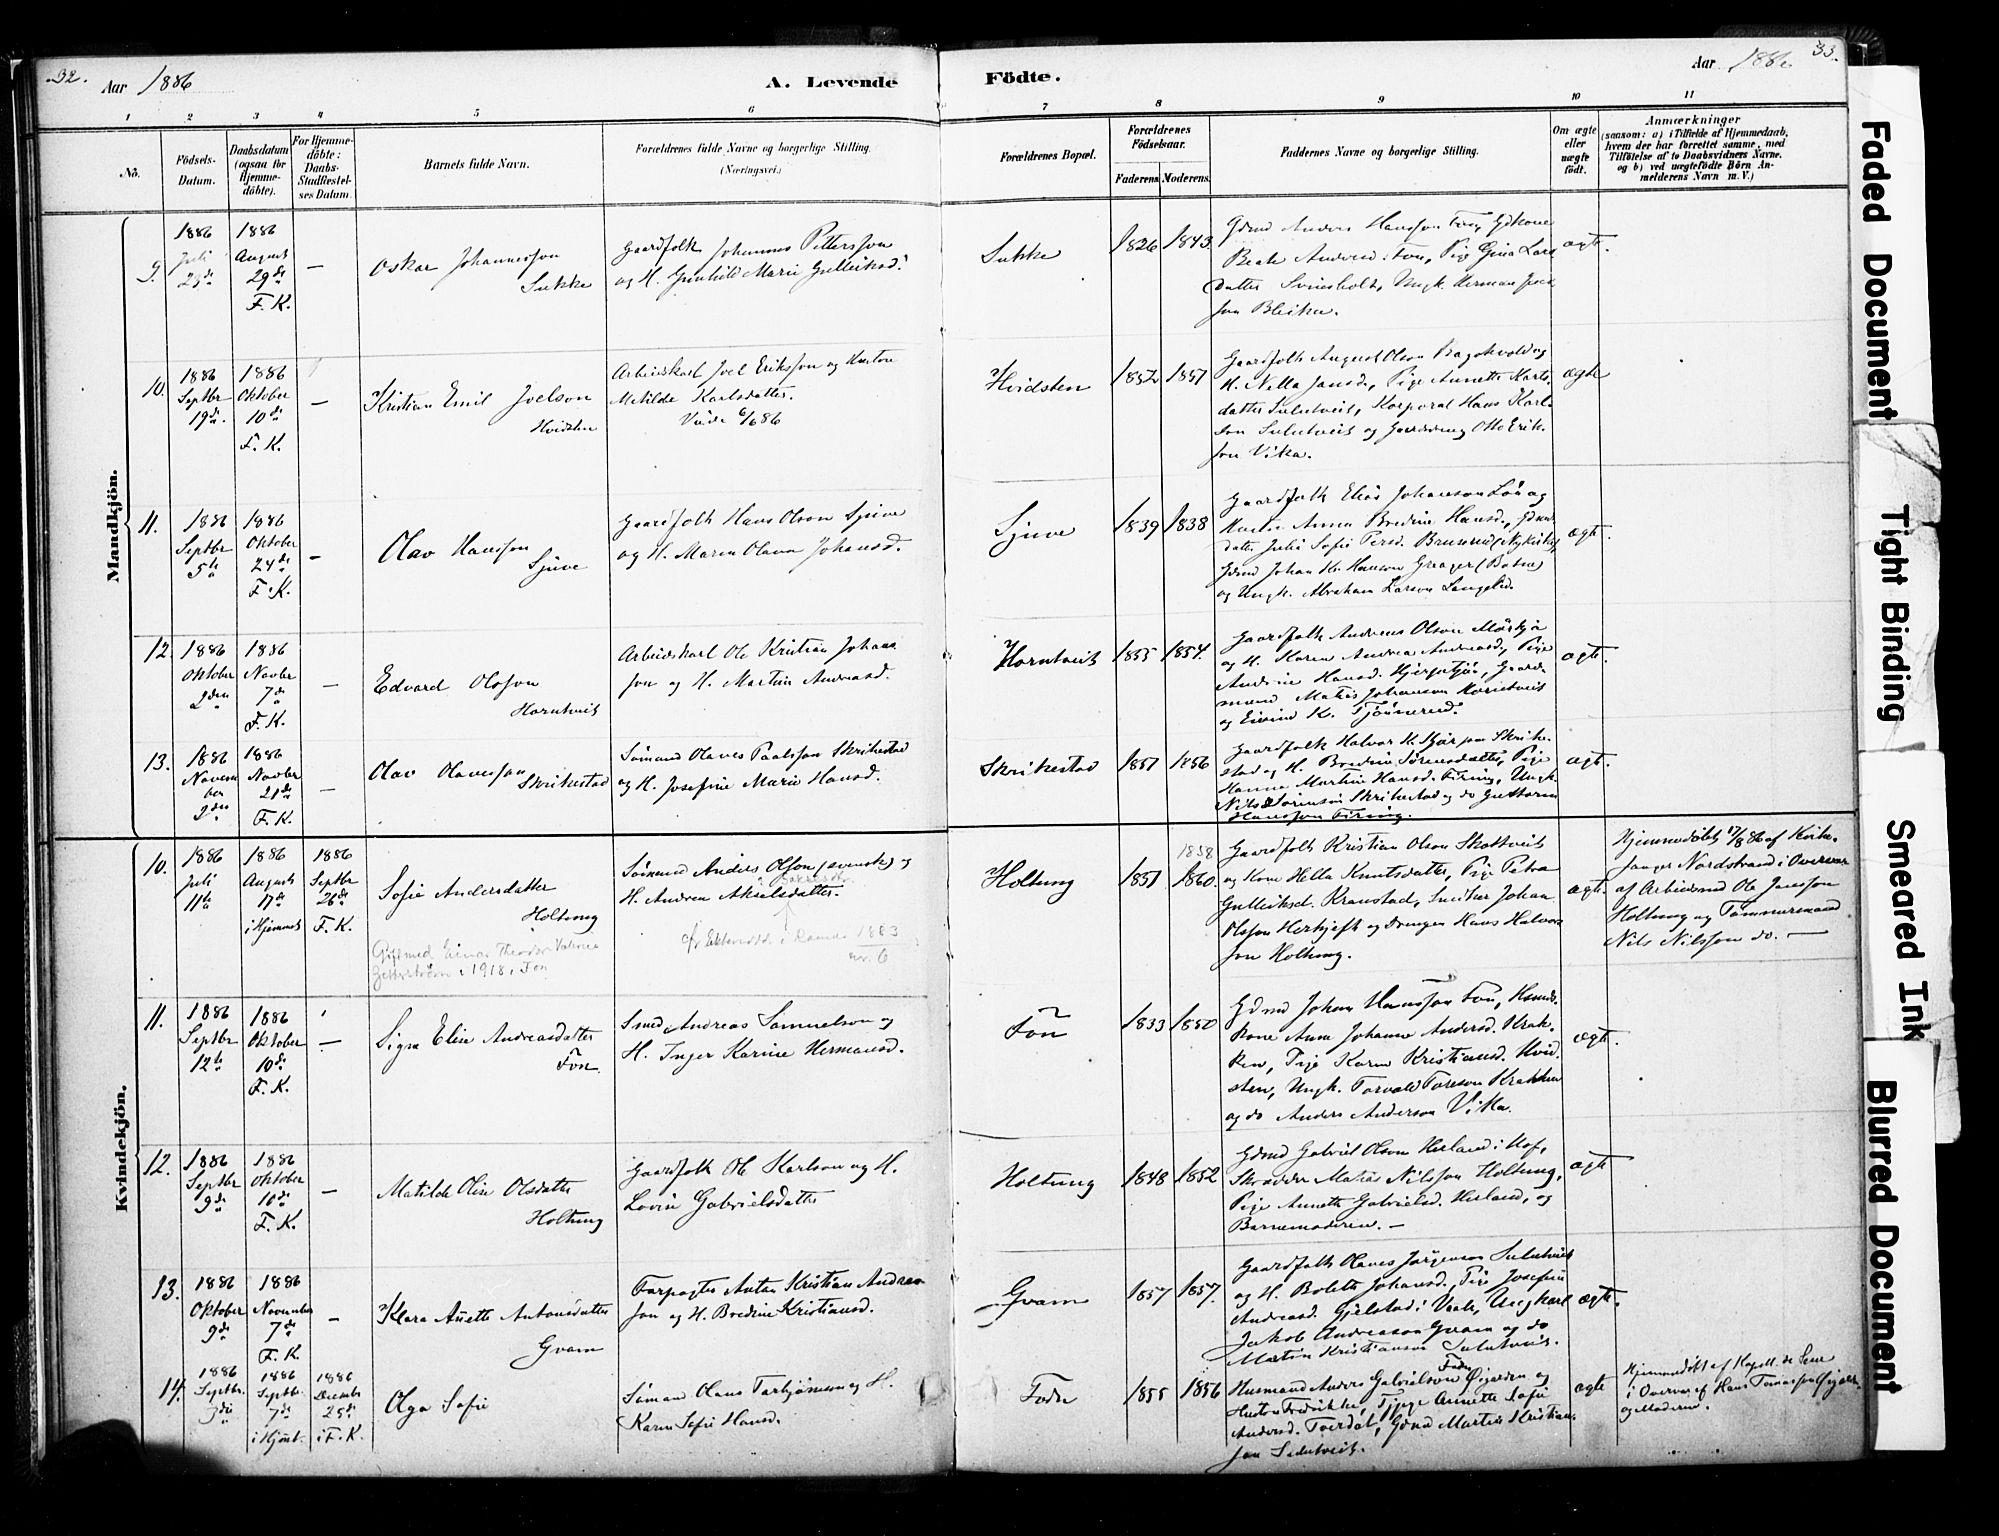 32.
Aar 1886
A. Levende
Födte.
Aar 1886
33.
1
2
3
4
5
6
7
8
9
10
11
No.
Födsels-
Datum.
Daabsdatum
(ogsaa for
Hjemme-
döbte).
For Hjemme-
döbte:
Daabs-
Stadfæstel-
ses Datum.
Barnets fulde Navn.
Forældrenes fulde Navne og borgerlige Stilling
(Næringsvei.)
Forældrenes Bopæl.
Forældrenes
Födselsaar.
Faderens
Moderens.
Faddernes Navne og borgerlige Stilling.
Om ægte
eller
uægte
födt.
Anmærkninger
(saasom: a) i Tilfælde af Hjemmedaab,
hvem der har forrettet samme, med
Tilföielse af to Daabsvidners Navne,
og b) ved uægtefödte Börn An-
melderens Navn m. V.)
Mandkjön.
9.
1886
Juli
1886
August
29de
F. K.
—
Oskar Johannesson
Sukke
Gaardfolk Johannes Pettersson
og H. Gunhild Marie Gulliksd.
Sukke
1826
1843
Gdmd Anders Hansson Fön, Gdkone
Beate Andersd. Fön, Pige Gina Lars
datter Svinsholt, Ungk. Herman
son Bleika.
ægte.
10.
1886
Septbr
19de
1886
Oktober
10de
F. K.
—
Kristian Emil Joelson
Hvidsten
Arbeidskarl Joel Eriksson og Hustru
Matilde Karlsdatter.
Viede 6/6 86
Hvidsten
1852
1851
Gaardfolk August Olson Bagsholdog
H. Nella Jansd., Pige Annette Karls-
datter Sulutveit, Korporal Hans Karl-
son Sulutveit og Gaardmand Otto Erik-
son Vika.
ægte
11.
1886
Septbr
5te
1886
Oktober
24de
F. K.
—
Olav Hansson
Sjuve
Gaardfolk Hans Olson Sjuve
og H. Maren Olava Johansd.
Sjuve
1839
1838
Gaardfolk Elias Johanson Lön og
Hustru Anna Bredine Hansd.,
datter Julie Sofie Persd. Brunerud (Nykirke)
Gdmd Johan Kr. Hanson Greager (Botne)
og Ungk. Abraham Larson Langelid.
ægte.
12.
1886
Oktober
2den
1886
Novbr
7de
F. K.
—
Edvard Olsson
Horntveit
Arbeidskarl Ole Kristian Johans
son og H. Martine Andreasd.
Horntveit
1855
1854.
Gaardfolk Andreas Olson Mörkjö
og H. Karen Andrea Andreasd, Pige
Andrine Hansd. Hjerpetjör, Gaard-
mand Matias Johanson Horntveit
og Eivind K. Tjönnerud.
ægte.
13.
1886
Novem
ber
2den
1886
Novbr
21de
F. K.
—
Olav Olavesson
Skrikestad
Sömand Olaves Paalsson Skrikestad
og H. Josefine Marie Hansd.
Skrikestad
1851
1856
Gaardfolk Halvor H. Skrike-
stad og H. Bredine Sörensdatter, Pige
Hanna Martine Hansd. Firing, Ungk.
Nils Sörenson Skrikestad og do Guttorm
Hansson Firing.
ægte.
Kvindekjön.
10.
1886
Juli
11te
1886
August
17de
i Hjemmet
1886
Septbr
26de
F. K.
Sofie Andersdatter
Holtung
Gift med Einar Theodor Valvnes
Zetterström i 1918 i Fon
Sömand Anders Olsson (svensk) og
H. Andrea Akselsdatter.
i Ramnes 1883
nr. 6
Holtung
1851
1858
1860.
Gaardfolk Kristian Olson Skottveit
og Kone Helle Knutsdatter, Pige Petra
Gulliksd. Kranstad, Snedker Johan
Olsson Herkjeft og Drengen Hans Halvor
son Holtung.
ægte.
Hjemmedöbt 17/8 86 af Kirke-
sanger Nordstrand i Overvær
af Arbeidsmd Ole Jansson
Holtung og Tömmermand
Nils Nilsson do. —
11.
1886
Septbr
12te
1886
Oktober
10de
F. K.
—
Signe Elise Andreasdatter
Fön.
Smed Andreas Samuelson og
H. Inger Karine Hermansd.
Fön
1833
1850
Gdmd Johan Hansson Fön, Husmds-
kone Anne Johanne Andersd. Krak-
ken, Pige Karen Kristiansd. Hvid-
sten, Ungk. Torvald Toreson Krakken
og do Anders Anderson Vika.
ægte.
12.
1886
Septbr
9de
1886
Oktober
10de
F. K.
—
Matilde Oline Olsdatter
Holtung
Gaardfolk Ole Karlson og H.
Lovise Gabrielsdatter
Holtung
1848
1852
Gdmd Gabriel Olson Herland i Hof,
Skrædder Matias Nilsson Holtung,
Pige Annette Gabrielsd. Herland, og
Barnemoderen. —
ægte
13.
1886
Oktober
9de
1886
November
7de
F. K.
—
Klara Anette Antonsdatter
Gvam
Forpagter Anton Kristian Andreas
son og H. Bredine Kristiansd.
Gvam
1857
1857.
Gaardfolk Olaves Jörgenson Sulutveit
og H. Bolette Johansd., Pige Josefine
Andreasd. Gjelstad i Vaale, Ungkarl
Jakob Andreasson Gvam og do
Martin Kristianson Sulutveit.
ægte.
14.
1886
Septbr.
3die
1886
Septbr.
7de
i Hjemt.
1886
Decemb
25de
i F. K.
Olga Sofie
Sömand Olaus Torbjörnsen og H.
Karen Sofie Hansd.
Foden
1855
1856
Husmand Anders Gabrielson Öigarden og
Foden
Hustru Fredrikke, Pige Annette Sofie
Andersd. Toerdal, Gdmd Martin Kristian-
son Sulutveit.
ægte
Hjemmedöbt af Kapell. de Seue
i Overvær af Hans Tomassen Öigarden
og Moderen.
Faded Document
Tight Binding
Smeared Ink
Blurred Document